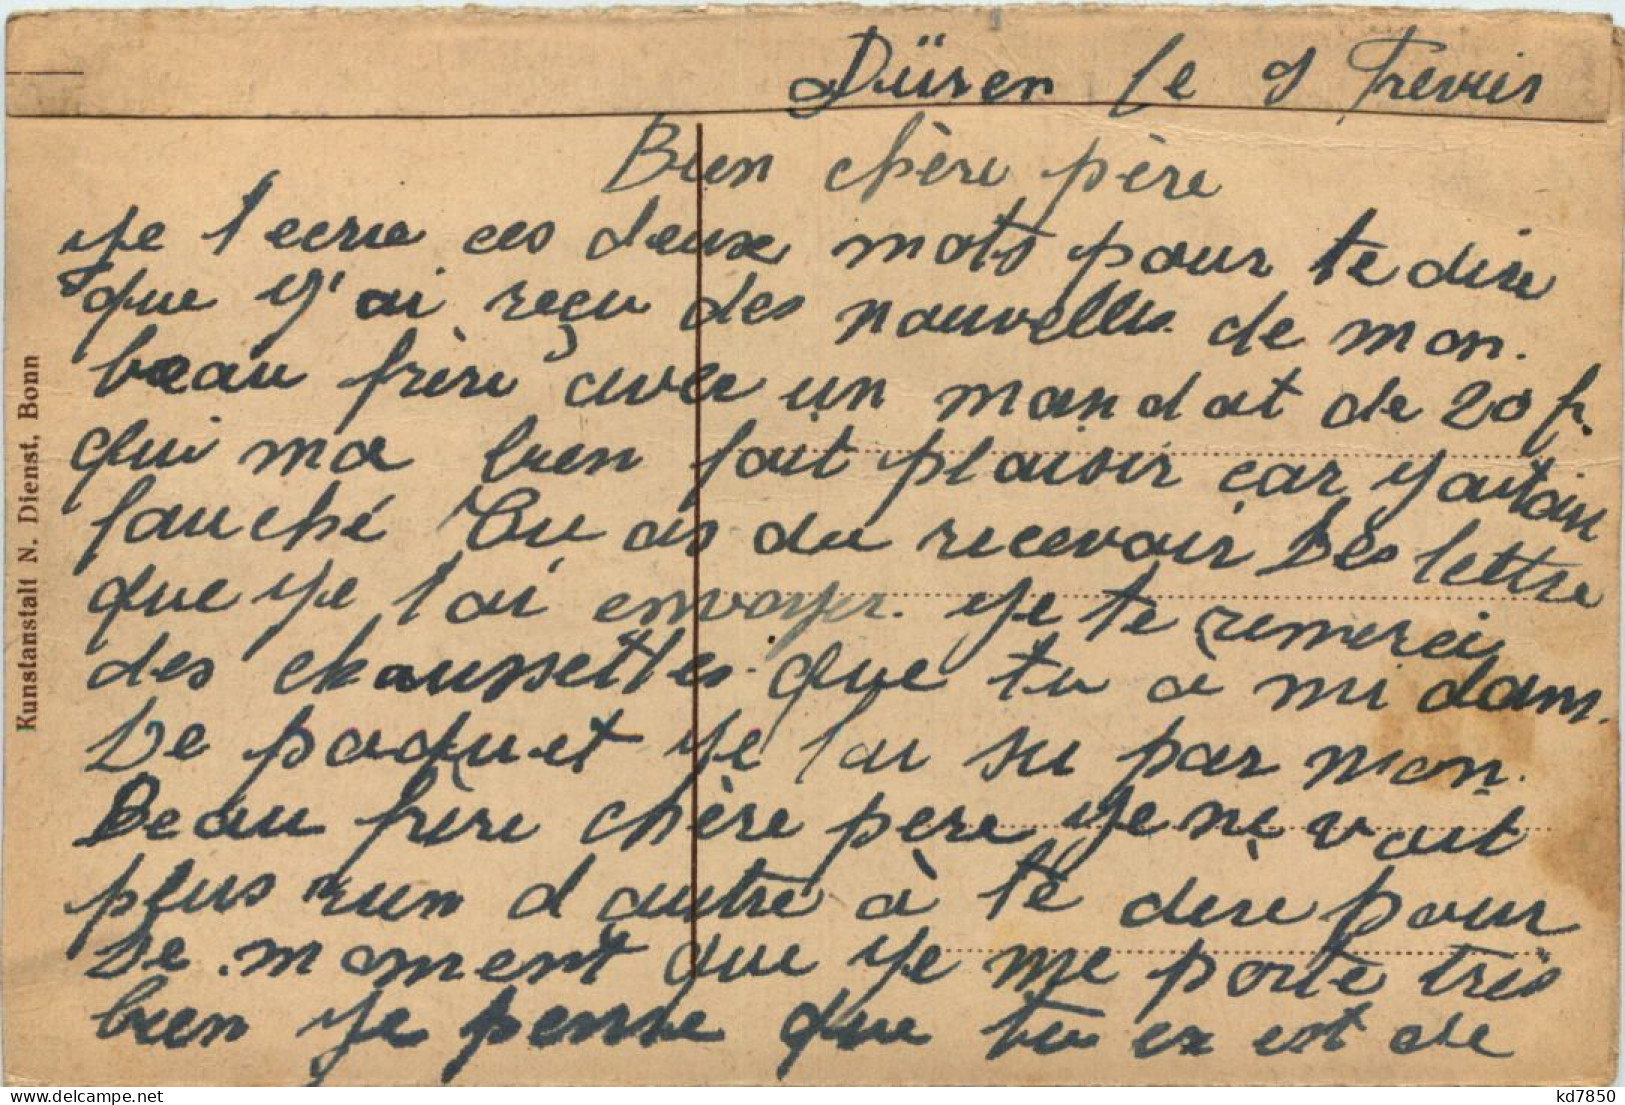 Düren le 9 Frevris
Bien chère père
Je t ecrie ces deux mots pour te dire
que j'ai reçu des nouvelles de mon.
beau frère avec un mandat de 20 f.
qui ma bien fait plaisir car j'aitais
fauché Tu as du recevoir Les lettre
que je t ai envoyer. je te remercie
des chaussettes que tu a mi dans.
Le paquet je l ai su par mon.
Beau frère chère père je ne voit
plus rien d autre à te dire pour
Le moment que je me porte très
bien je pense que tu ex est de
Kunstanstalt N. Dienst, Bonn
kd7850